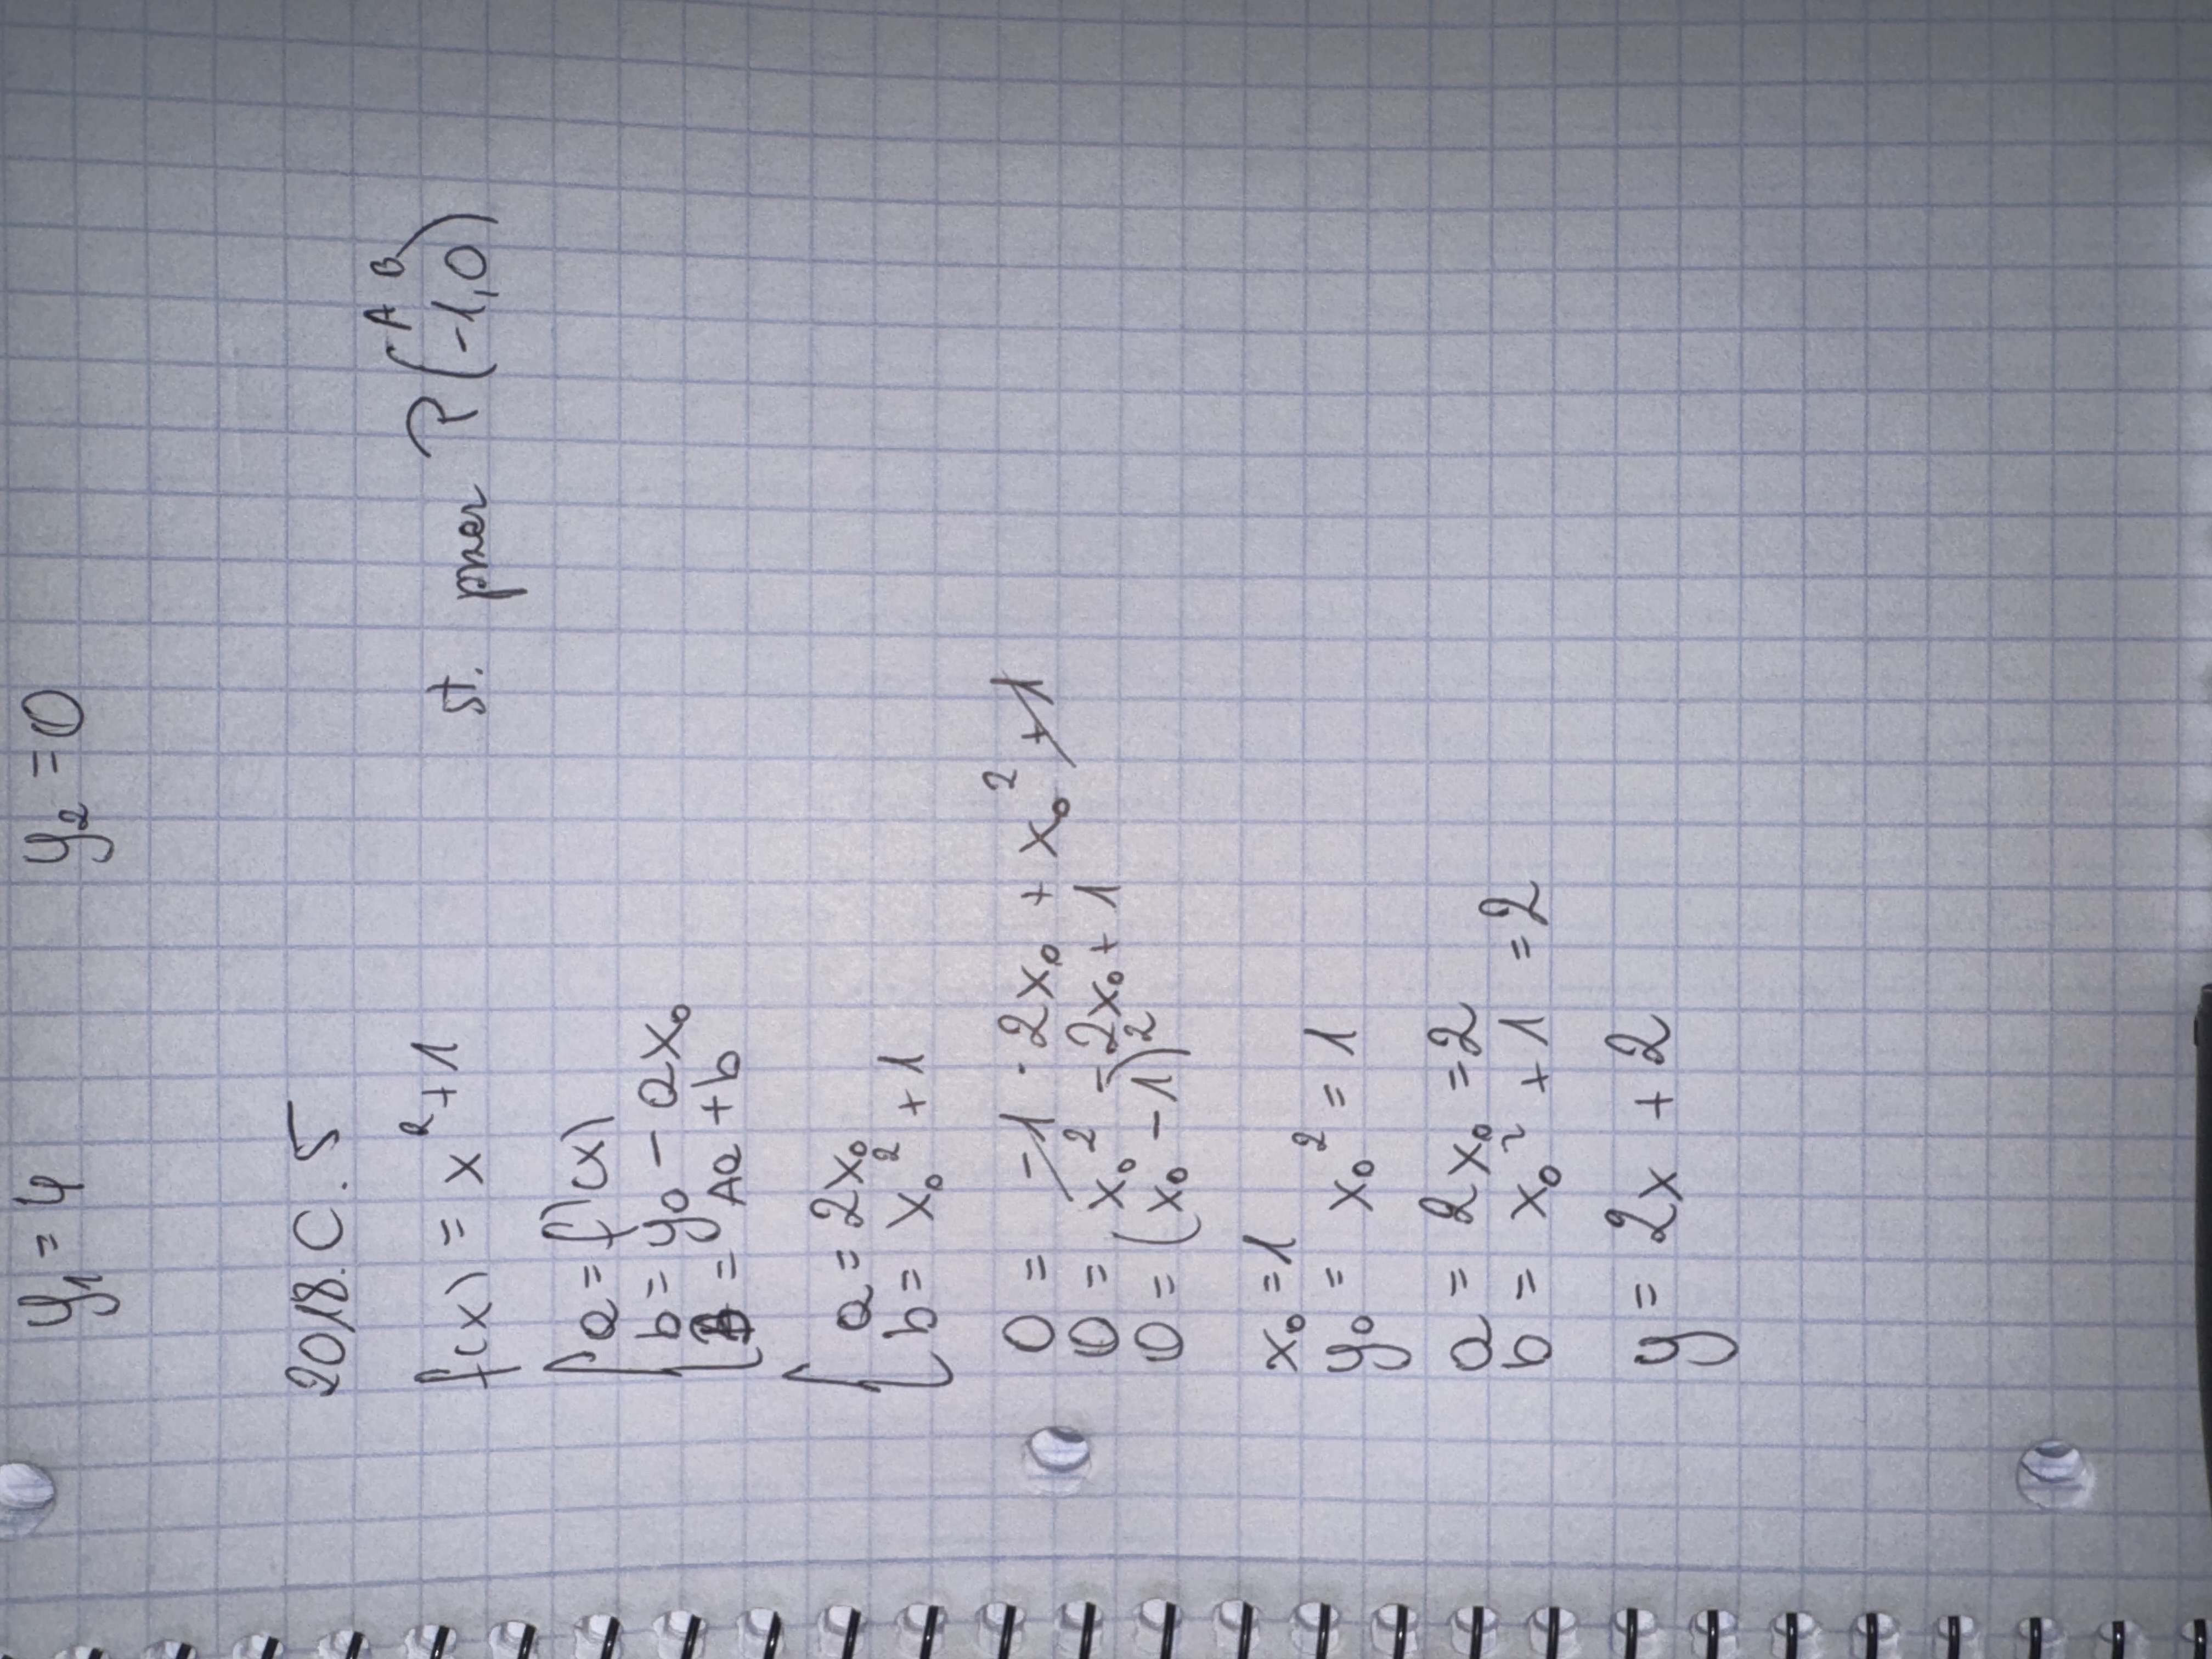 y₁ = 4 y₂ = 0
2018.C.5
f(x) = x² + 1 st. przez P(-1,0) A B
a = f'(x)
b = y₀ - ax₀
B = Aa + b
a = 2x₀
b = x₀² + 1
0 = -1 · 2x₀ + x₀² + 1
0 = x₀² - 2x₀ + 1
0 = (x₀ - 1)²
x₀ = 1
y₀ = x₀² = 1
a = 2x₀ = 2
b = x₀² + 1 = 2
y = 2x + 2